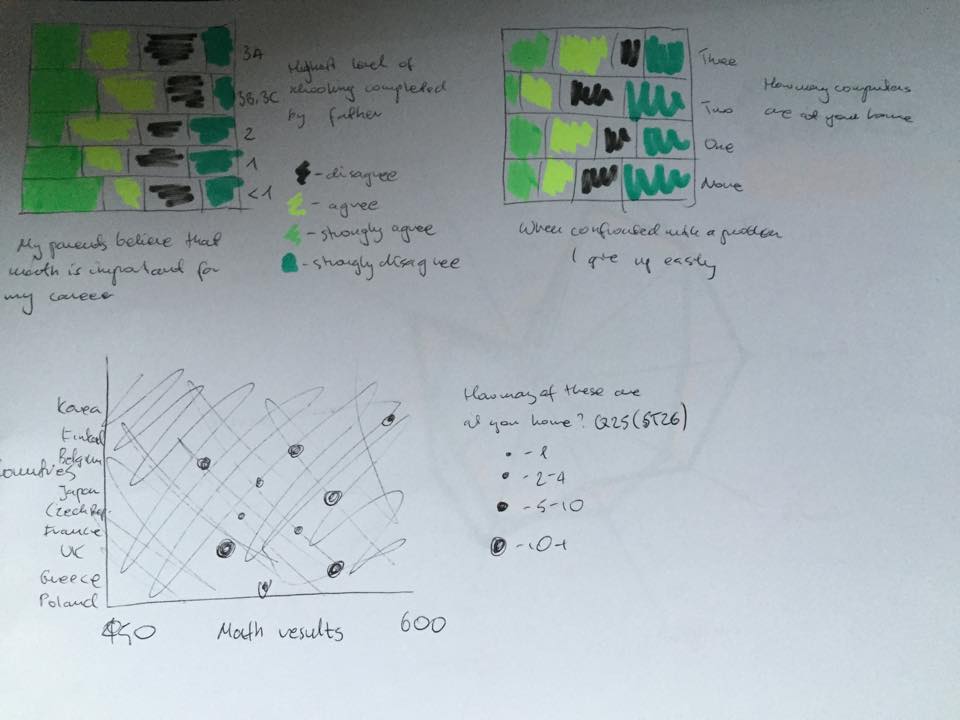 3A
3B, 3C
2
1
<1
Highest level of
schooling completed
by father
- disagree
- agree
- strongly agree
- strongly disagree
My parents believe that
math is important for
my career
Three
Two
One
None
How many computers
are at your home
When confronted with a problem
I give up easily
Korea
Belgium
Countries
Japan
Czech Rep.
France
UK
Greece
Poland
450
Math results
600
How many of these are
at you home? Q25(ST26)
- 2-4
- 5-10
- 10+